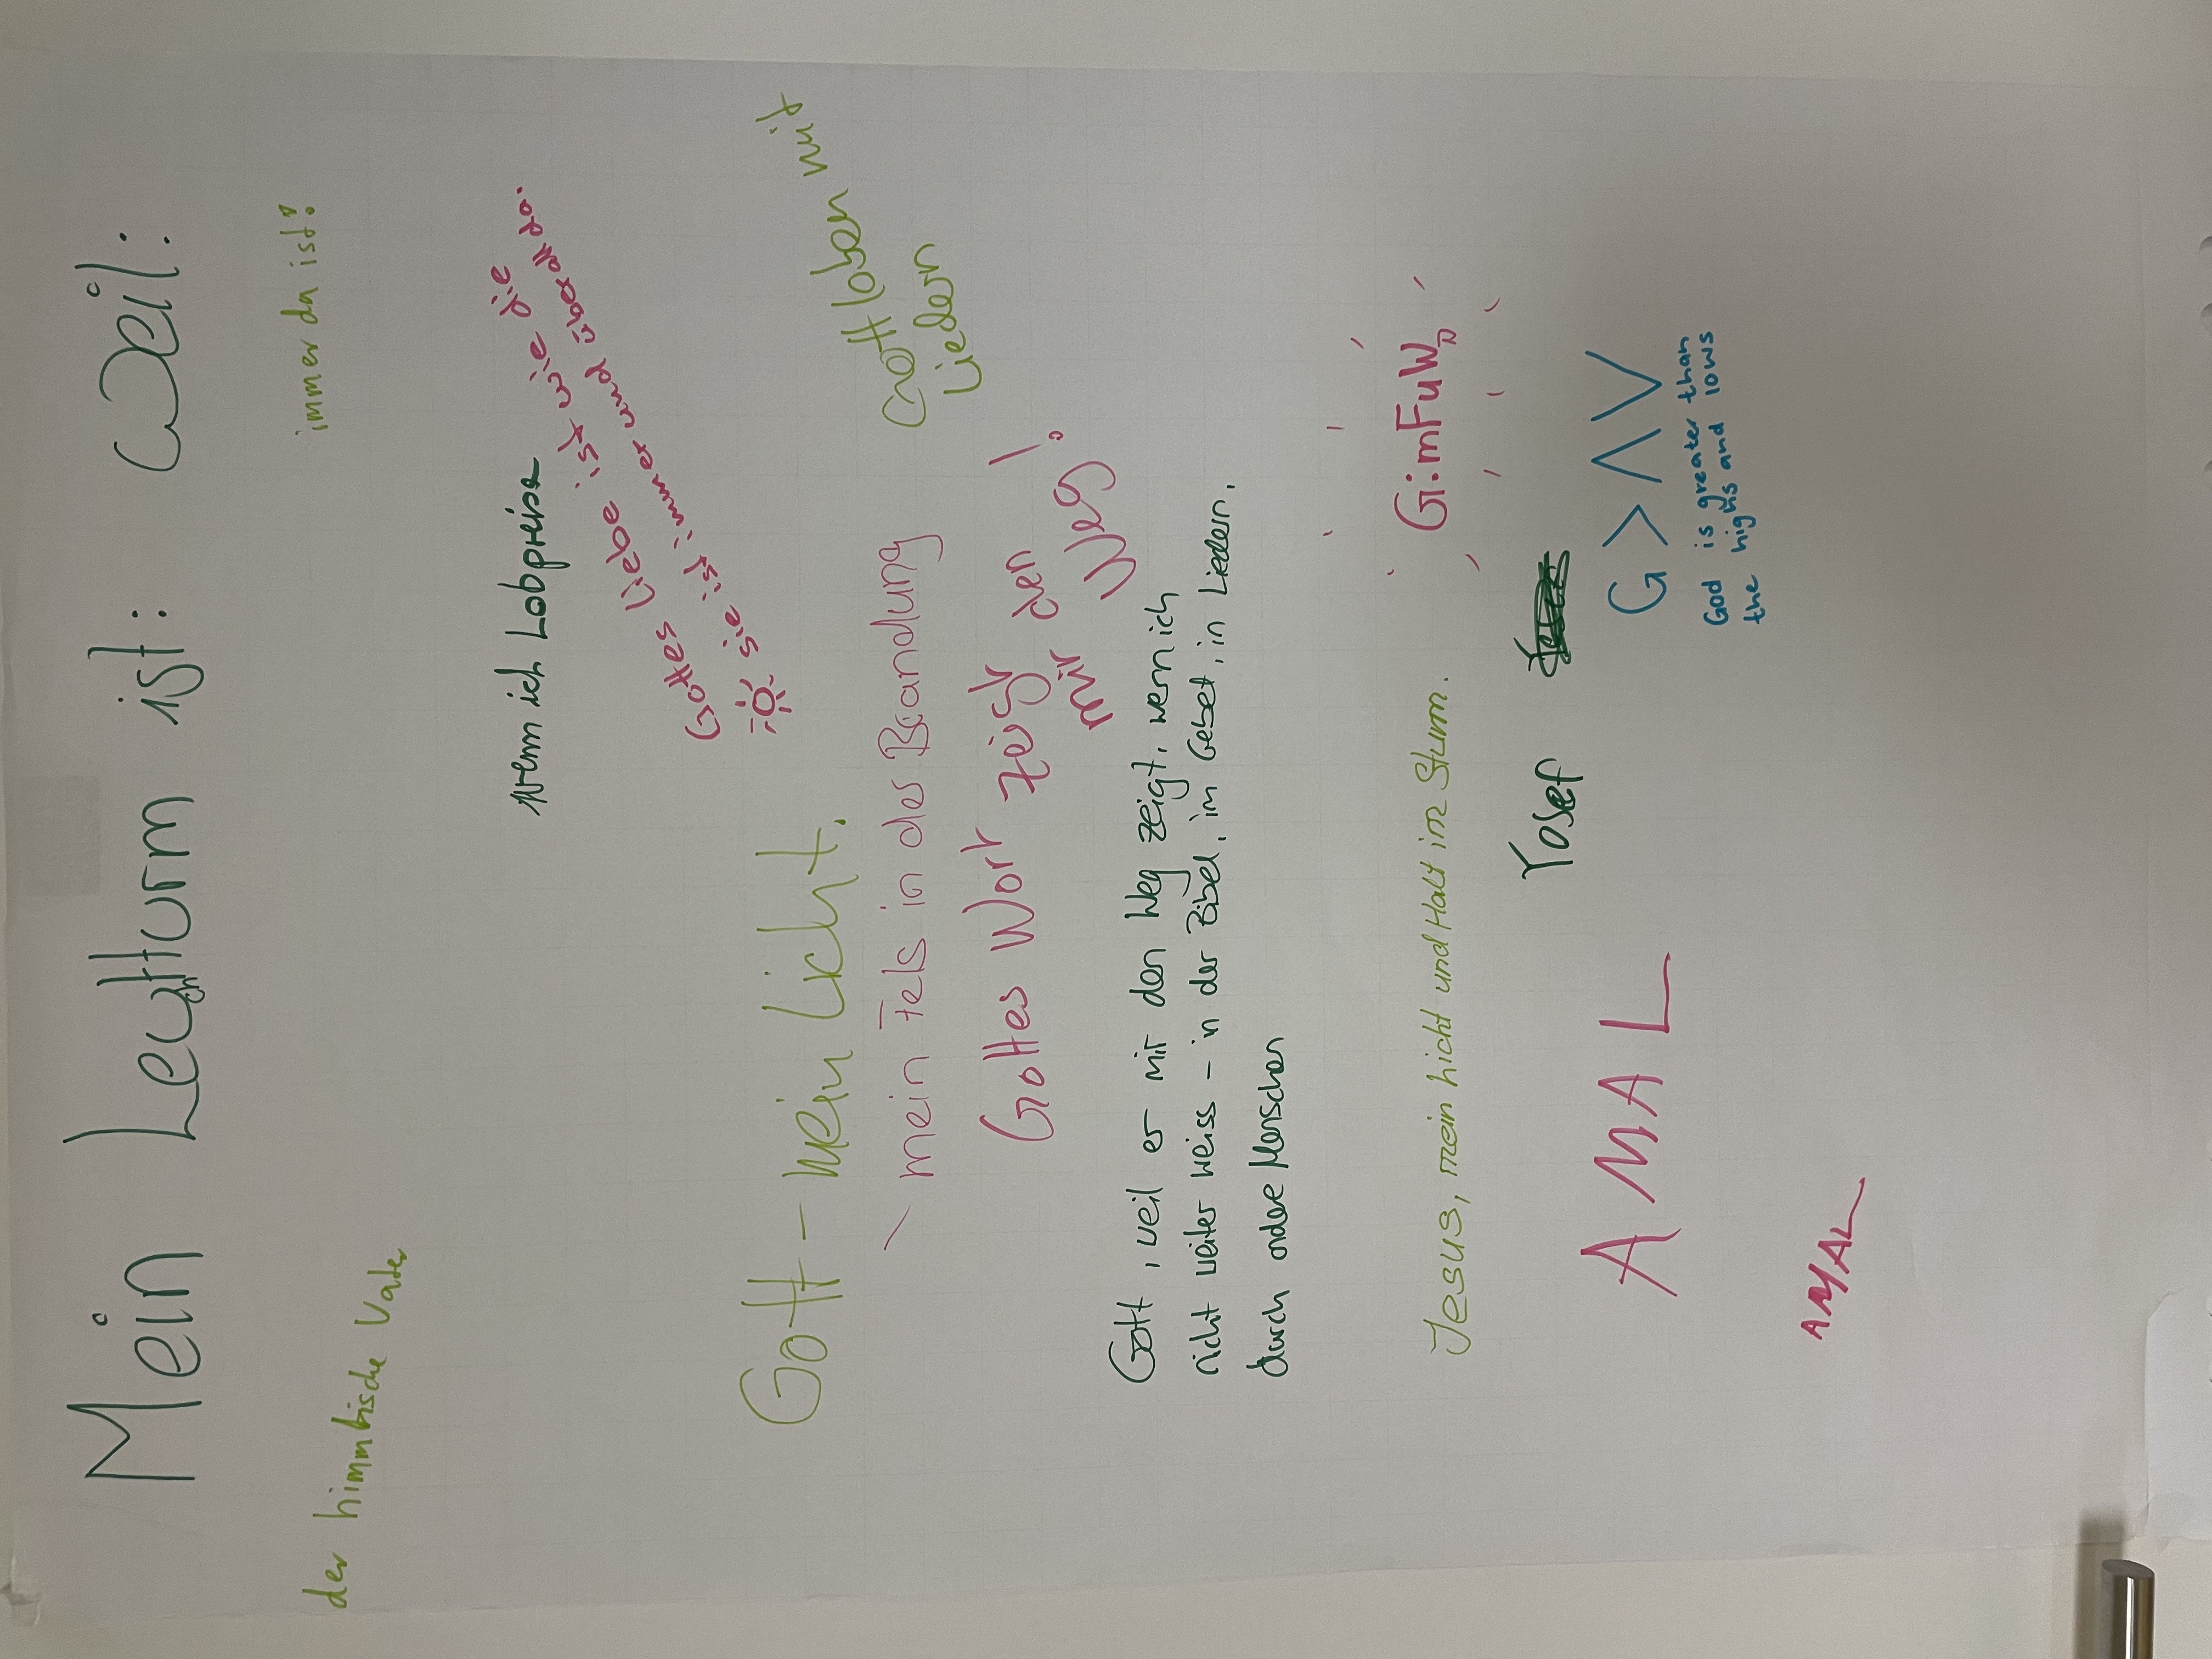 Mein Leuchtturm ist: weil:
immer da ist!
der himmlische Vater
wenn ich Lobpreise
Gottes Liebe ist wie die
☀ sie ist immer und überall da.
Gott - mein Licht.
Gott loben mit
Liedern
mein Fels in der Brandung
Gottes Wort zeigt den
mir Weg!
Gott, weil er mir den Weg zeigt, wenn ich
nicht weiter weiss - in der Bibel, im Gebet, in Liedern,
durch andere Menschen
Jesus, mein Licht und Halt im Sturm.
G:mFuW
Yosef
G > Λ V
God is greater than
the highs and lows
AMAL
AMAL